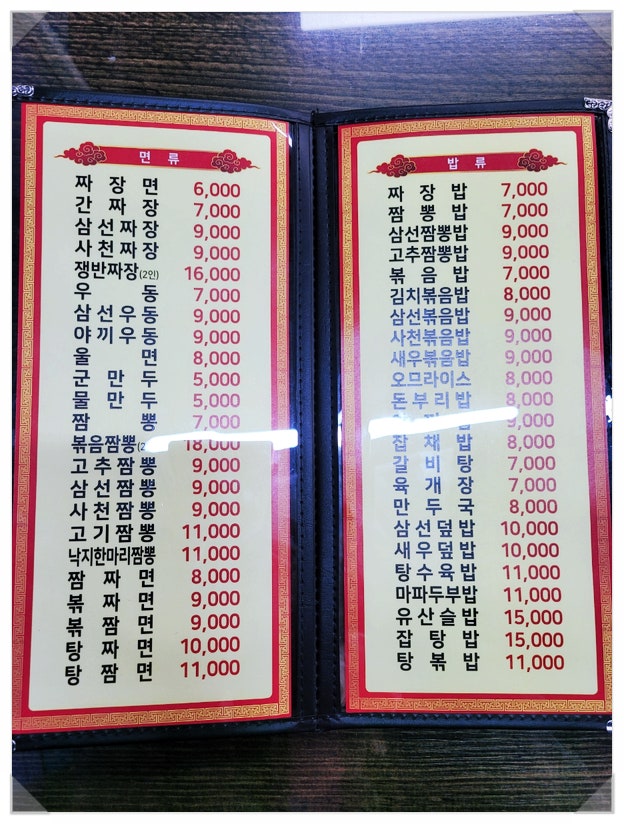 면 류
짜 장 면 6,000
간 짜 장 7,000
삼선짜장 9,000
사천짜장 9,000
쟁반짜장(2인) 16,000
우 동 7,000
삼선우동 9,000
야끼우동 9,000
울 면 8,000
군 만 두 5,000
물 만 두 5,000
짬 뽕 7,000
볶음짬뽕 18,000
고추짬뽕 9,000
삼선짬뽕 9,000
사천짬뽕 9,000
고기짬뽕 11,000
낙지한마리짬뽕 11,000
짬 짜 면 8,000
볶 짜 면 9,000
볶 짬 면 9,000
탕 짜 면 10,000
탕 짬 면 11,000
밥 류
짜 장 밥 7,000
짬 뽕 밥 7,000
삼선짬뽕밥 9,000
고추짬뽕밥 9,000
볶 음 밥 7,000
김치볶음밥 8,000
삼선볶음밥 9,000
사천볶음밥 9,000
새우볶음밥 9,000
오므라이스 8,000
돈부리밥 8,000
9,000
잡 채 밥 8,000
갈 비 탕 7,000
육 개 장 7,000
만 두 국 8,000
삼선덮밥 10,000
새우덮밥 10,000
탕수육밥 11,000
마파두부밥 11,000
유산슬밥 15,000
잡 탕 밥 15,000
탕 볶 밥 11,000